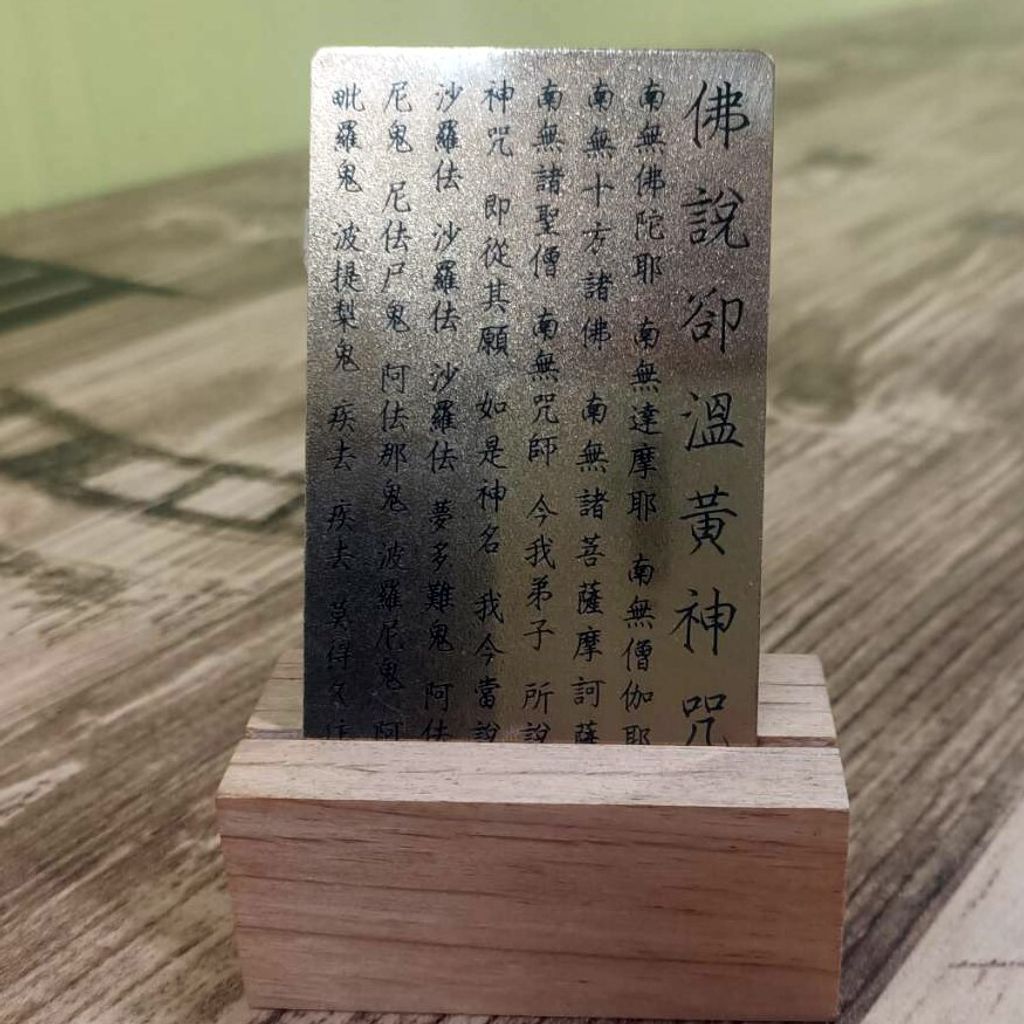 佛說卻溫黃神咒
南無佛陀耶 南無達摩耶 南無僧伽耶
南無十方諸佛 南無諸菩薩摩訶薩
南無諸聖僧 南無咒師 今我弟子 所說
神咒 即從其願 如是神名 我今當說
沙羅佉 沙羅佉 沙羅佉 夢多難鬼 阿佉
尼鬼 尼佉尸鬼 阿佉那鬼 波羅尼鬼 阿
毗羅鬼 波提梨鬼 疾去 疾去 莫得久住